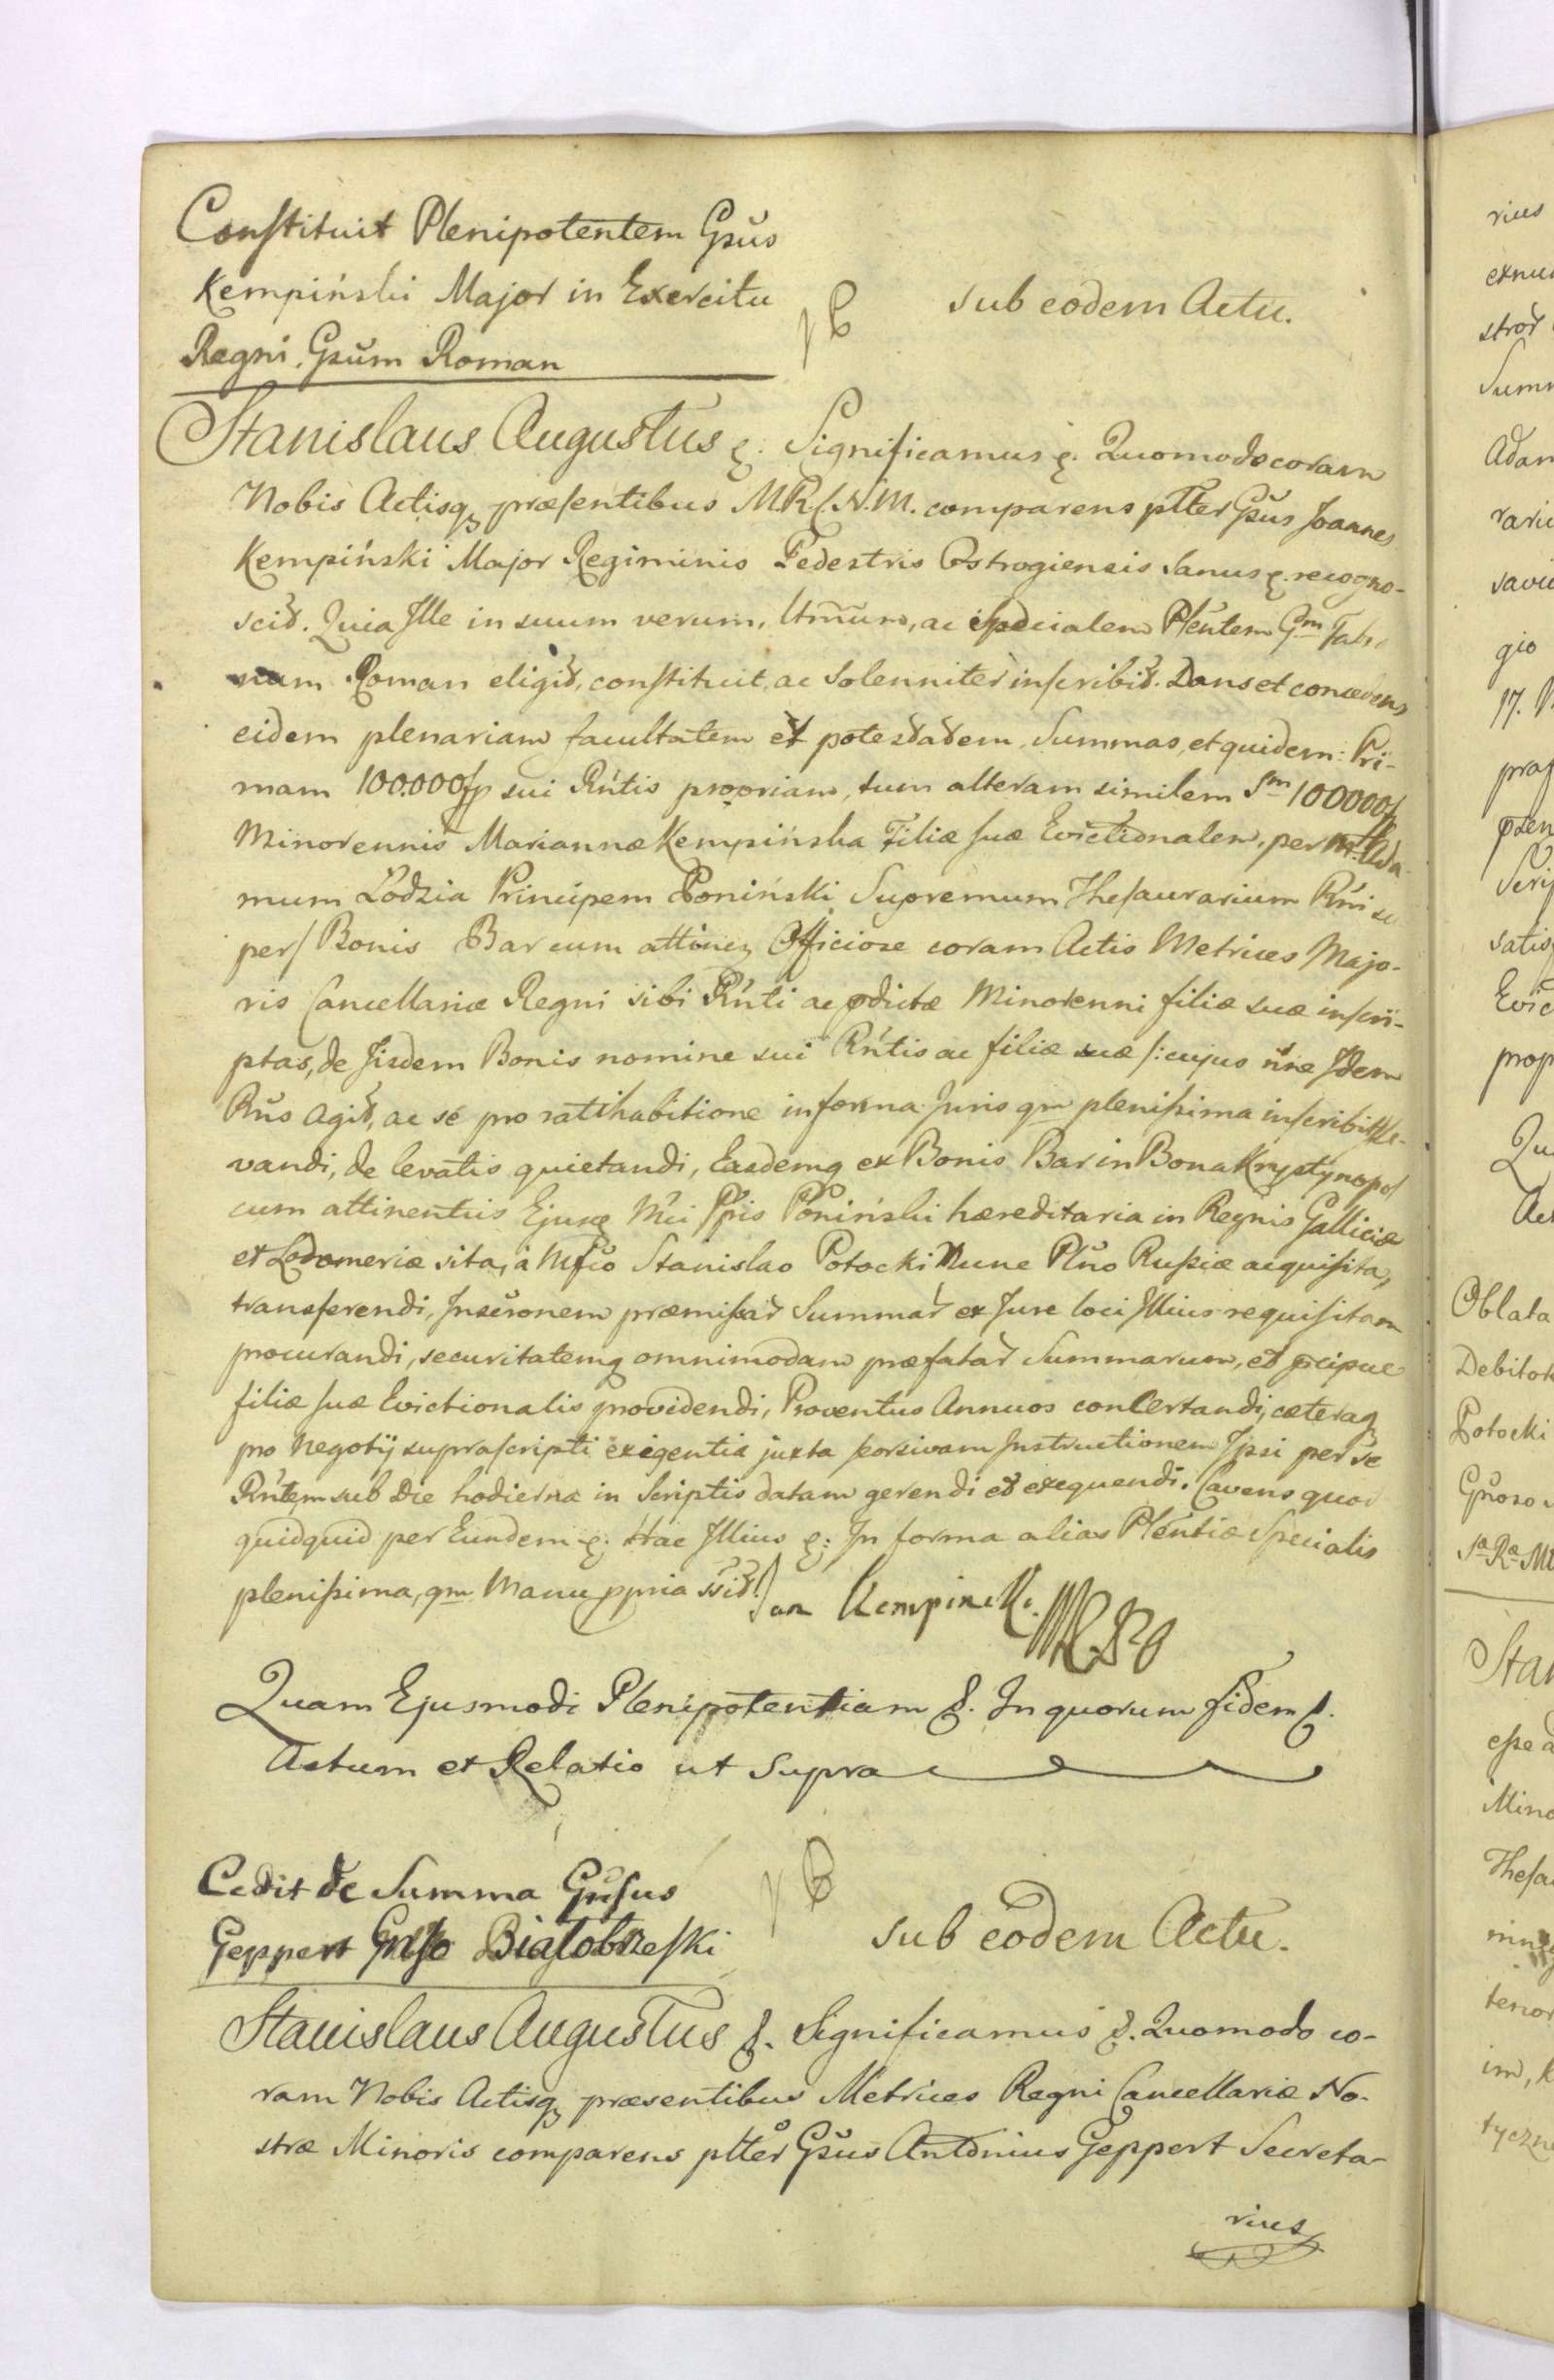 Constituit Plenipotentem Gsus
Kempiński Major in Exercitu
Regni, Gsum Roman
sub eodem Actu.
Stanislaus Augustus &. Significamus &. Quomodo coram
Nobis Actisq præsentibus M.R.C.N.M. comparens pltter Gsus Joannes
Kempiński Major Regiminis Pedestris Ostrogiensis Sanus &. recogno-
scit. Quia Ille in suum verum, ltmum, ac specialem Plentem Gm
Roman eligit, constituit, ac Solenniter inscribit. Dans et concedens
eidem plenariam facultatem et potestatem, Summas, et quidem: Pri-
mam 100.000 fp sui Rntis propriam, tum alteram similem Sm 100000 f
Minorennis Mariannæ Kempińska Filiæ suæ Evictionalem, per Ada-
mum Łodzia Principem Poniński Supremum Thesaurarium Rni
per Bonis Bar cum attinen Officiose coram Actis Metrices Majo-
ris Cancellariæ Regni sibi Rnti ac pdictæ Minorenni filiæ suæ inscri-
ptas, de Iisdem Bonis nomine sui Rntis ac filiæ suæ /: cujus nne Idem
Rns agit, ac se pro ratihabitione in forma Juris qm plenissima inscribit le-
vandi, de levatis quietandi, Easdemq ex Bonis Bar in Bona Krystynopol
cum attinentiis Ejusq Mci Ppis Poniński hæreditaria in Regnis Galliciæ
et Lodomeriæ sita, a Mfco Stanislao Potocki Nunc Plno Russiæ acquisita,
transferendi, Inscronem præmissar Summar ex Jure loci Illius requisitam
procurandi, securitatemq omnimodam præfatar Summarum, et pcipue
filiæ suæ Evictionalis providendi, Proventus Annuos concertandi, cæteraq
pro Negotij suprascripti exigentia juxta seorsivam Instructionem Ipsi per se
Rntem sub Die hodierna in Scriptis datam gerendi et exequendi. Cavens quod
quidquid per Eundem &; Hac Illius &: In forma alias Plentiæ Specialis
plenissima, qm Manu ppria ssit. Jan Kempinski
Quam Ejusmodi Plenipotentiam &. In quorum fidem &.
Actum et Relatio ut supra
Cedit de Summa Gnsus
Geppert Gnso Białobrzeski
sub eodem Actu.
Stanislaus Augustus &. Significamus &. Quomodo co-
ram Nobis Actisq præsentibus Metrices Regni Cancellariæ No-
stræ Minoris comparens pltter Gsus Antonius Geppert Secreta-
rius